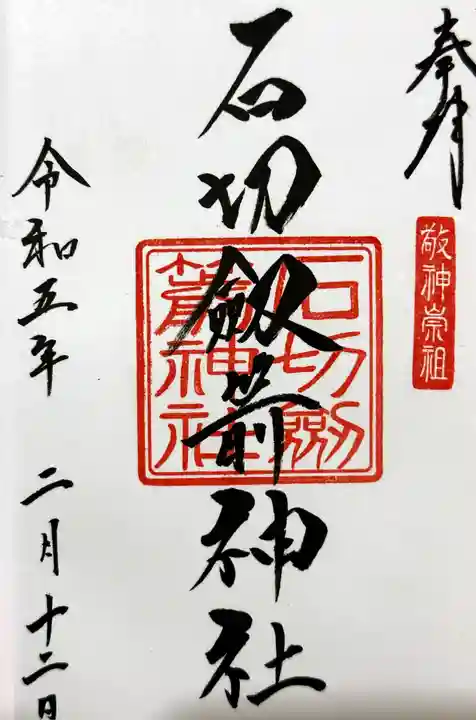 奉拝
敬神崇祖
石切劔箭神社
石切劔箭神社
令和五年 二月十二日